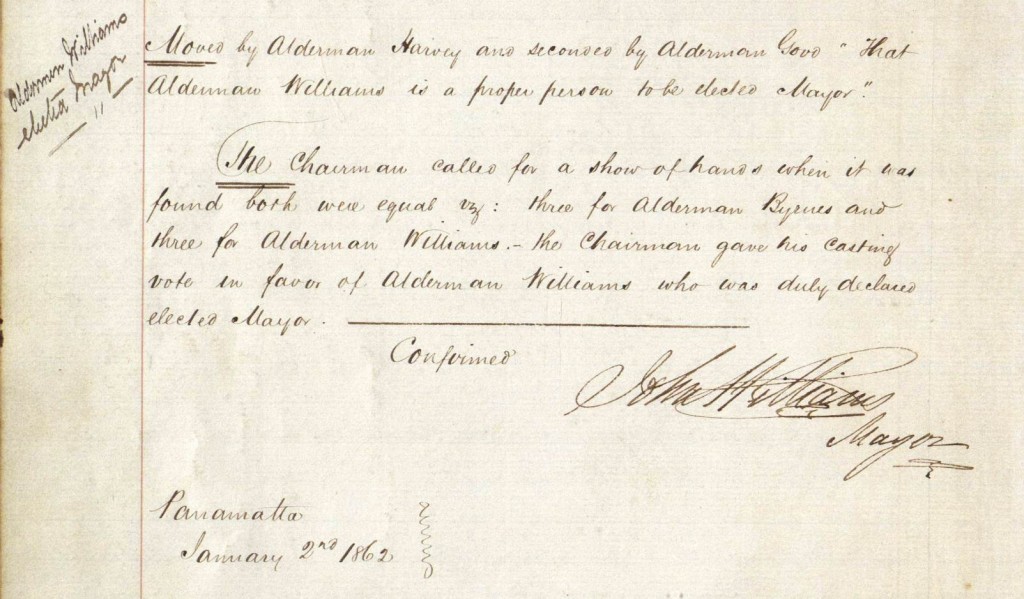 Alderman Williams
elected Mayor
Moved by Alderman Harvey and seconded by Alderman Good " That
Alderman Williams is a proper person to be elected Mayor".
The Chairman called for a show of hands when it was
found both were equal viz: three for Alderman Byrnes and
three for Alderman Williams. – the Chairman gave his casting
vote in favor of Alderman Williams who was duly declared
elected Mayor.
Confirmed
John Williams
Mayor
Parramatta
January 2nd 1862